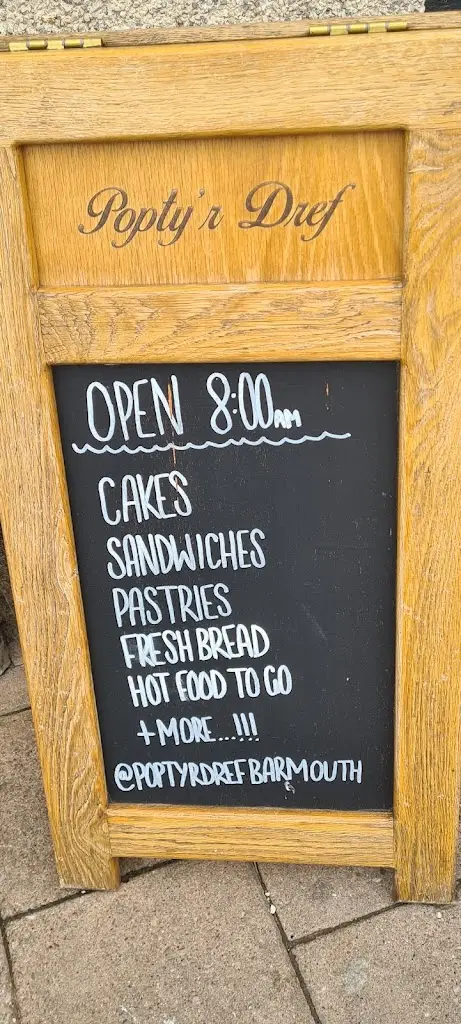 Popty'r Dref
OPEN 8:00AM
CAKES
SANDWICHES
PASTRIES
FRESH BREAD
HOT FOOD TO GO
+ MORE...!!!
@POPTYRDREFBARMOUTH